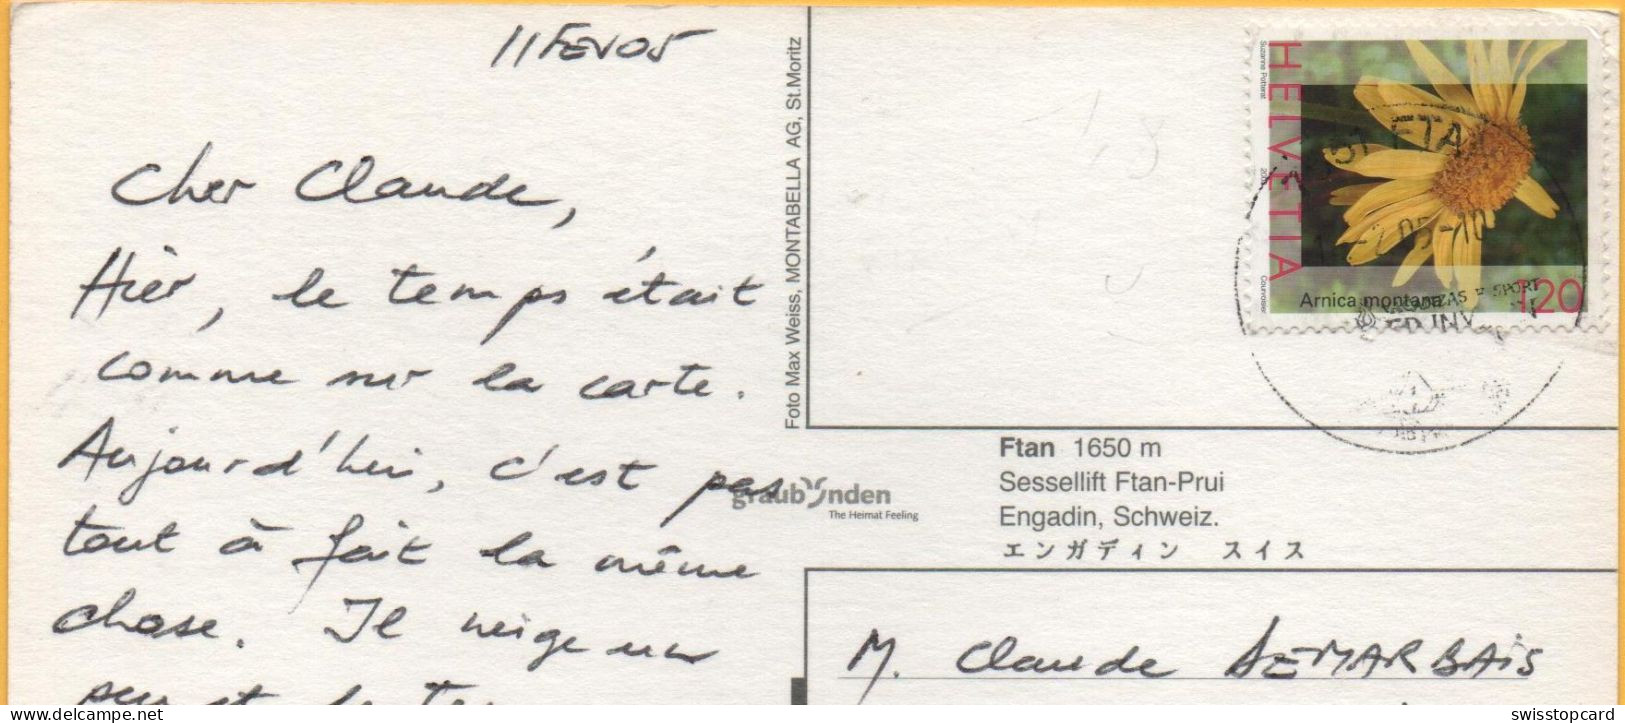 11 FEV 05
Cher Claude,
Hier, le temps était
comme sur la carte.
Aujourd'hui, c'est pas
tout à fait la même
chose. Il neige un
peu et le
Foto Max Weiss, MONTABELLA AG, St. Moritz
graubünden
The Heimat Feeling
HELVETIA
Suzanne Potterat
Courvoisier
Arnica montana
120
51 FTAN
05-10
SPORT
Ftan 1650 m
Sessellift Ftan-Prui
Engadin, Schweiz.
エンガディン スイス
M. Claude DEMARBAIS
swisstopcard